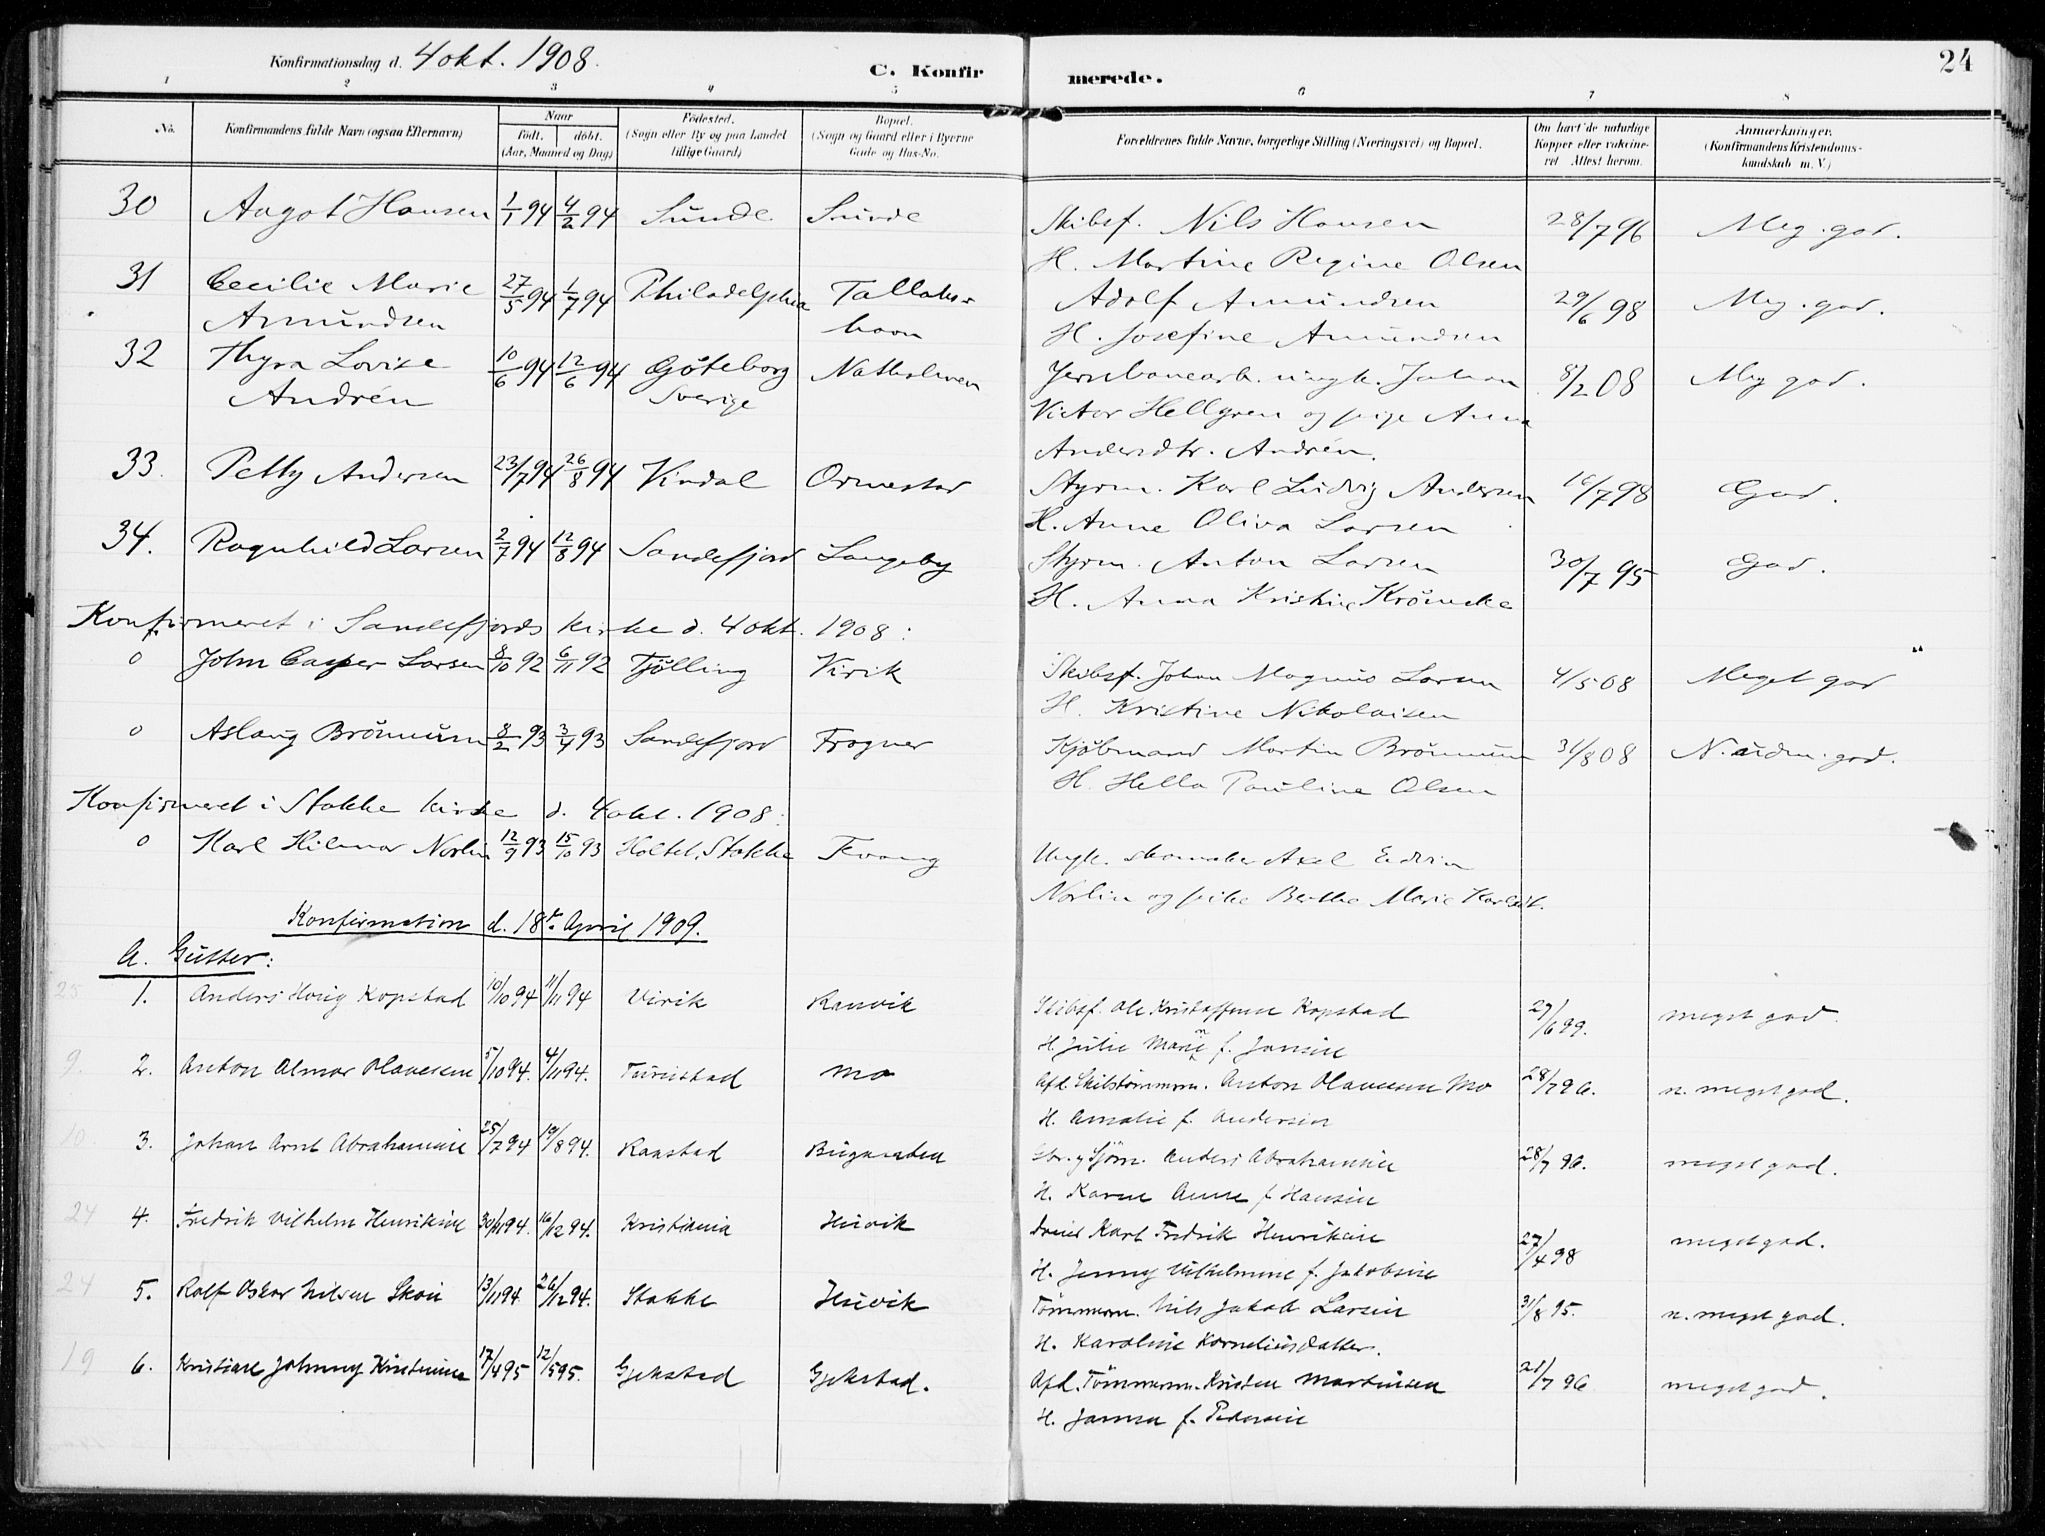 Konfirmationsdag d. 4 okt. 1908.
C. Konfirmerede.
24
1 2 3 4 5 6 7 8
No. Konfirmandens fulde Navn (ogsaa Efternavn) Naar født. døbt. (Aar, Maaned og Dag) Fødested. (Sogn eller By og paa Landet tillige Gaard) Bopæl. (Sogn og Gaard eller i Byerne Gade og Hus-No. Forældrenes fulde Navne, borgerlige Stilling (Næringsvei) og Bopæl. Om havt de naturlige Kopper eller vakcineret Attest herom. Anmærkninger. (Konfirmandens Kristendomskundskab m. V.)
30 Aagot Hansen 1/1 94 4/2 94 Sunde Sunde Skibsf. Nils Hansen 28/7 96 Meg. god.
H. Martine Regine Olsen
31 Cecilie Marie 27/5 94 1/7 94 Philadelphia Tallaks- Adolf Amundsen 29/6 98 Meg. god.
Amundsen havn H. Josefine Amundsen
32 Thyra Lovise 10/6 94 12/6 94 Göteborg Natholmen Jernbanearb. ungk. Johan 8/2 08 Meg god.
Andrén Sverige Victor Hellgren og pige Anna
Andersdtr. Andrén.
33. Petty Andersen 23/7 94 26/8 94 Vindal Ormestad Styrm. Karl Ludvig Andersen 10/7 98 God.
H. Anne Oliva Larsen
34. Ragnhild Larsen 2/7 94 12/8 94 Sandefjord Langeby Styrm. Anton Larsen 30/7 95 God.
H. Anna Kristine
Konfirmeret i Sandefjords kirke d. 4 okt. 1908:
0 John Casper Larsen 8/10 92 6/11 92 Tjølling Virik Skibsf. Johan Magnus Larsen 4/5 08 Meget god
H. Kristine Nikolaisen
0 Aslaug Brönnum 8/2 93 3/4 93 Sandefjord Frogner Kjøbmand Martin Brönnum 31/8 08 N. udm. god.
H. Hella Pauline Olsen
Konfirmeret i Stokke kirke d. 4 okt. 1908:
0 Karl Hilmar Norlin 12/9 93 15/10 93 Holtet, Stokke Fevang Ungk. skomaker Axel Edvin
Norlin og pike Berthe Marie Karlsdt.
Konfirmation d. 18de April 1909.
A. Gutter:
25 1. Anders Houg Kopstad 10/10 94 11/11 94 Virik Ranvik Skibsf. Ole Kristoffersen Kopstad 27/6 99. meget god.
H. Julie Marie f. Jansen
9. 2. Anton Almar Olavesen 5/10 94. 4/11 94. Furustad Mo Afd. Skibstømmerm. Anton Olavesen Mo 28/7 96. n. meget god.
H. Amalie f. Andersen
10. 3. Johan Arnt Abrahamsen 25/7 94 19/8 94. Raastad Bugaarden Anders Abrahamsen 28/7 96. meget god.
H. Karen Anne f Hansen
24 4. Fredrik Vilhelm Henriksen 30/11 94. 16/12 94. Kristiania Husvik Karl Fredrik Henriksen 27/4 98 meget god.
H. Jenny Vilhelmine f. Jakobsen
24 5. Rolf Oskar Nilsen Skou 13/11 94 26/12 94. Stokke Husvik Tømmerm. Nils Jakob Larsen 31/8 95. n. meget god.
H. Karoline Korneliusdatter.
19 6. Kristian Johnny Kristensen 17/4 95 12/5 95. Gjekstad Gjekstad. Afd. Tömmerm. Kristen Martinsen 21/7 96 meget god.
H. Janna f. Pedersen